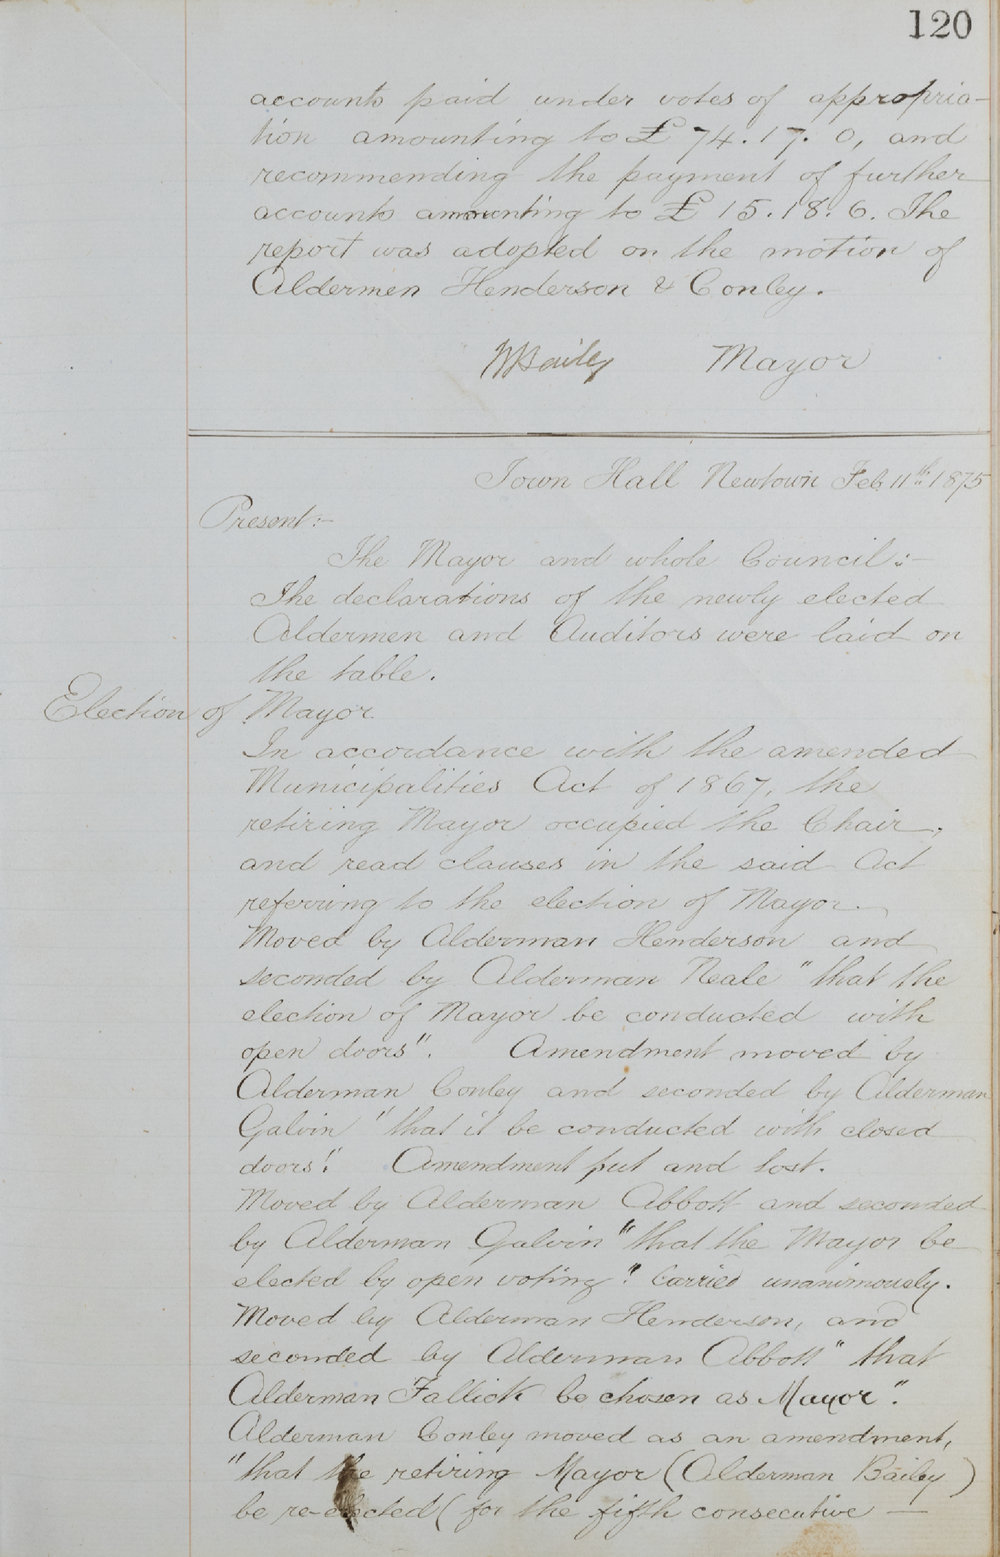 120
accounts paid under votes of appropria-
tion amounting to £74.17.0, and
recommending the payment of further
accounts amounting to £15.18.6. The
report was adopted on the motion of
Aldermen Henderson & Conley.
W Bailey Mayor
Town Hall Newtown Feb. 11th 1875
Present:-
The Mayor and whole Council:-
The declarations of the newly elected
Aldermen and Auditors were laid on
the table.
Election of Mayor
In accordance with the amended
Municipalities Act of 1867, the
retiring Mayor occupied the Chair,
and read clauses in the said Act
referring to the election of Mayor.
Moved by Alderman Henderson and
seconded by Alderman Neale "that the
election of Mayor be conducted with
open doors". Amendment moved by
Alderman Conley and seconded by Alderman
Galvin "that it be conducted with closed
doors". Amendment put and lost.
Moved by Alderman Abbott and seconded
by Alderman Galvin "that the Mayor be
elected by open voting". Carried unanimously.
Moved by Alderman Henderson, and
seconded by Alderman Abbott "that
Alderman Fallick be chosen as Mayor".
Alderman Conley moved as an amendment,
"that the retiring Mayor (Alderman Bailey)
be re-elected (for the fifth consecutive —